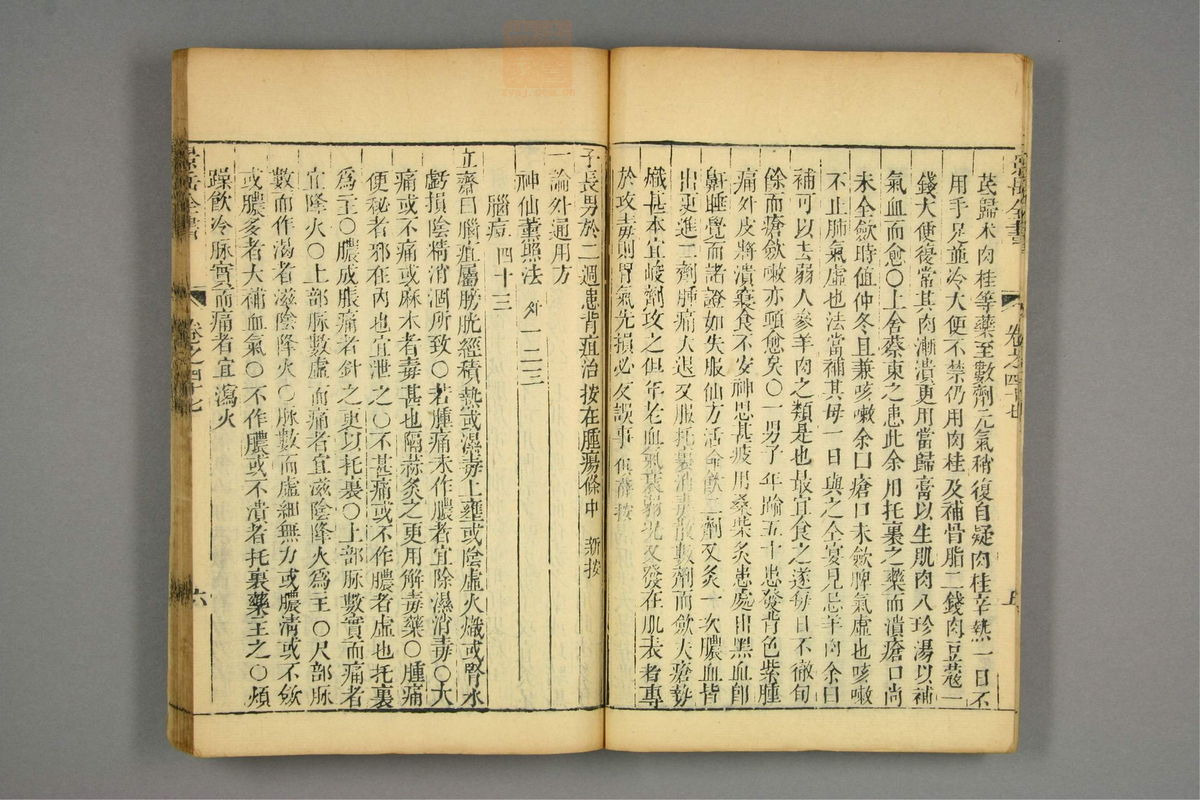 芪歸木肉桂等藥至數劑元氣稍復自疑肉桂辛熱一日不
用手足董冷大便不禁仍用肉桂及補骨脂二錢肉豆蔻一
錢大便復常其肉漸潰更用當歸膏以生肌肉八珍湯以補
氣血而愈〇上舍蔡東之患此余用托裏之藥而潰瘡口尚
未全歛時值仲冬且兼咳嗽余曰瘡口未歛脾氣虛也咳嗽
不止肺氣虛也法當補其母一日與之仝宴見忌羊肉余曰
補可以去弱人參羊肉之類是也最宜食之遂每日不徹旬
餘而瘡歛嗽亦頓愈矣〇一男子年踰五十患發背色紫腫
痛外皮將潰寢食不安神思甚疲用桑柴炙患處出黑血卽
鼾睡覺而諸證如失服仙方活命飲二劑又炙一次膿血皆
出更進二劑腫痛大退又服托裏消毒散數劑而歛大瘡勢
熾甚本宜峻劑攻之但年老血氣衰弱况又發在肌表者專
於攻毒則胃氣先損必反誤事 俱薛按
子長男於二週患背疽治 按在腫瘍條中 新按
一論外通用方
神仙薰照法 外一二三
腦疽 四十三
立齋曰腦疽屬膀胱經積熱或濕毒上壅或陰虛火熾或腎水
虧損陰精消涸所致〇若腫痛未作膿者宜除濕消毒〇大
痛或不痛或麻木者毒甚也隔蒜灸之更用解毒藥〇腫痛
便秘者邪在內也宜泄之〇不甚痛或不作膿者虛也托裏
為主〇膿成脹痛者針之更以托裏〇上部脉數實而痛者
宜降火〇上部脉數虛而痛者宜滋陰降火為主〇尺部脉
數而作渴者滋陰降火〇脉數而虛細無力或膿清或不歛
或膿多者大補血氣〇不作膿或不潰者托裏藥主之〇煩
躁飲冷脉實而痛者宜瀉火
景岳全書
卷之四十七
六